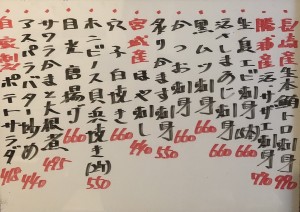 長崎産生本鮪トロ刺身 990
勝浦産サザエ刺身 970
生真ユビ刺身 660
活〆しまあじ刺身 660
黒ムツ刺身 660
かつお刺身 550
炙りかます刺身
宮城産ほや刺し 440
穴子白焼き 660
ホンビノス貝浜焼き 550
目光唐揚げ 660
サワラかまと大根煮 495
アスパラバター炒め 440
自家製ポテトサラダ 418